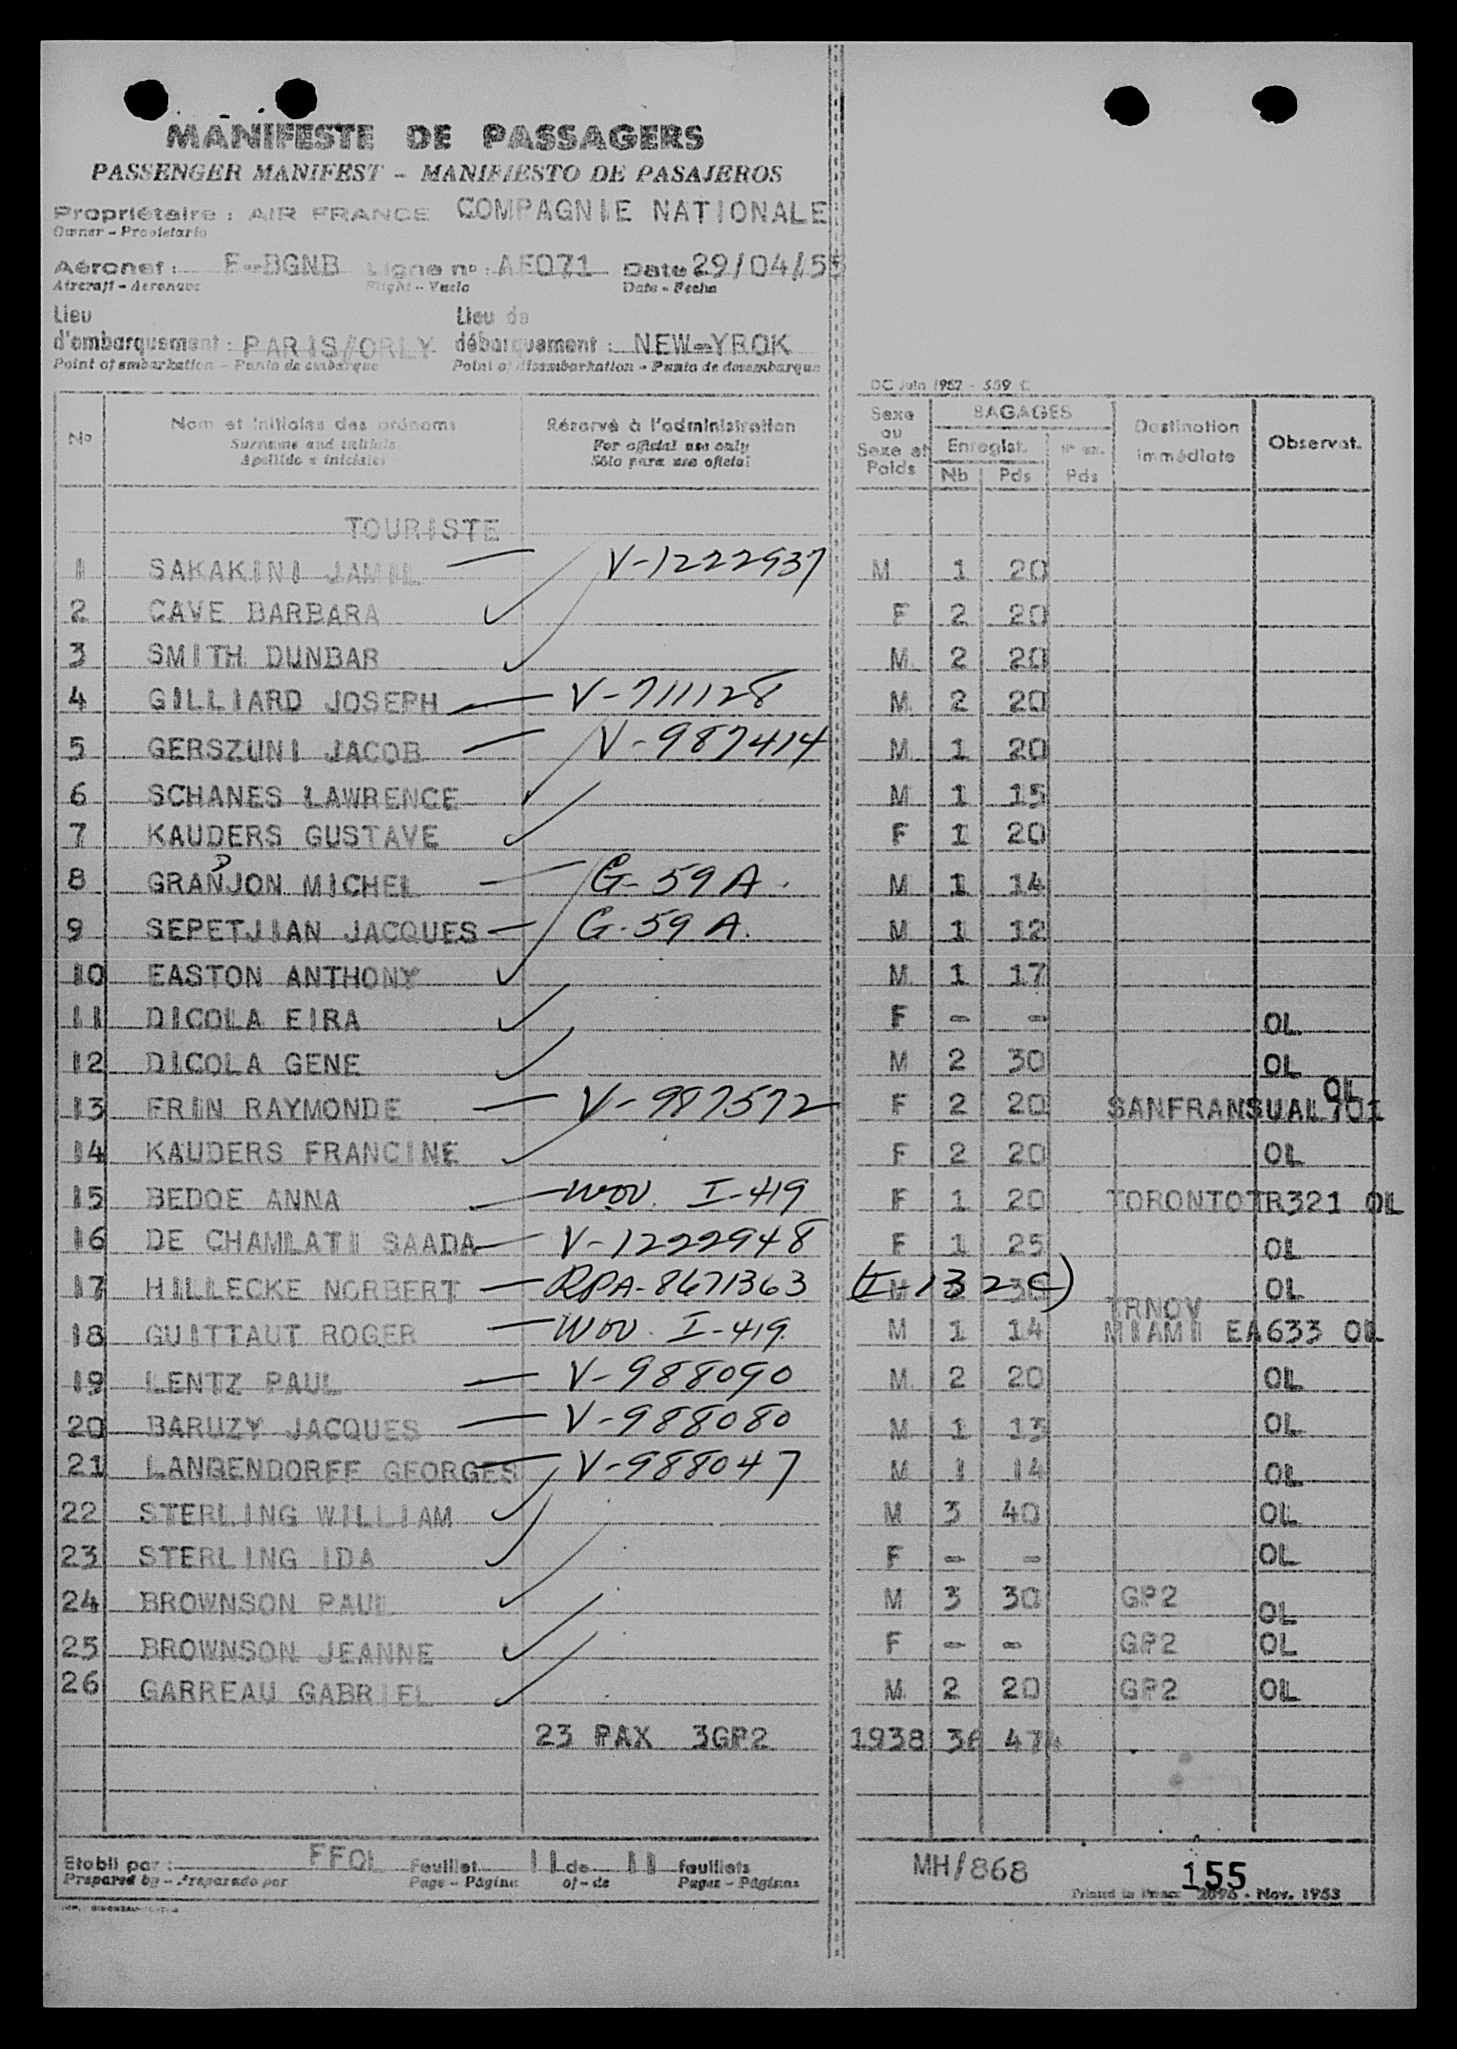 MANIFESTE DE PASSAGERS
PASSENGER MANIFEST - MANIFIESTO DE PASAJEROS
Propriétaire : AIR FRANCE COMPAGNIE NATIONALE
Owner - Propietario
Aéronef : F-BGNB Ligne nº : AF071 Date 29/04/55
Aircraft - Aeronave Flight - Vuelo Date - Fecha
Lieu d'embarquement : PARIS/ORLY Lieu de débarquement : NEW-YROK
Point of embarkation - Punto de embarque Point of disembarkation - Punto de desembarque
DC Juin 1952 - 559 C
Nº Nom et initiales des prénoms Réservé à l'administration Sexe ou Sexe et Poids BAGAGES Destination immédiate Observat.
Surname and initials For official use only Enregist.
Apellido e iniciales Sólo para uso oficial Nb Pds Pds
TOURISTE
1 SAKAKINI JAMIL V-1222937 M 1 20
2 CAVE BARBARA F 2 20
3 SMITH DUNBAR M 2 20
4 GILLIARD JOSEPH V-711128 M 2 20
5 GERSZUNI JACOB V-987414 M 1 20
6 SCHANES LAWRENCE M 1 15
7 KAUDERS GUSTAVE F 1 20
8 GRANJON MICHEL G-59A. M 1 14
9 SEPETJIAN JACQUES G-59A. M 1 12
10 EASTON ANTHONY M 1 17
11 DICOLA EIRA F - - OL
12 DICOLA GENE M 2 30 OL
13 FRIN RAYMONDE V-987572 F 2 20 SANFRANSUAL701 OL
14 KAUDERS FRANCINE F 2 20 OL
15 BEDOE ANNA WOV. I-419 F 1 20 TORONTOTR321 OL
16 DE CHAMLATI SAADA V-1222948 F 1 25 OL
17 HILLECKE NORBERT RPA-8671363 (I-132C) M 30 OL
TRNOV
18 GUITTAUT ROGER WOV. I-419. M 1 14 MIAMI EA633 OL
19 LENTZ PAUL V-988090 M 2 20 OL
20 BARUZY JACQUES V-988080 M 1 13 OL
21 LANGENDORFF GEORGES V-988047 M 1 14 OL
22 STERLING WILLIAM M 3 40 OL
23 STERLING IDA F - - OL
24 BROWNSON PAUL M 3 30 GP2 OL
25 BROWNSON JEANNE F - - GP2 OL
26 GARREAU GABRIEL M 2 20 GP2 OL
23 PAX 3GP2 1938 36 474
Etabli par : FFOL Feuillet 11 de 11 feuillets MH/868 155
Prepared by - Preparado por Page - Página of - de Pages - Páginas Printed in France 2096 - Nov. 1953